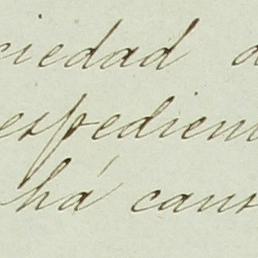 ciedad d
espedien
há caus